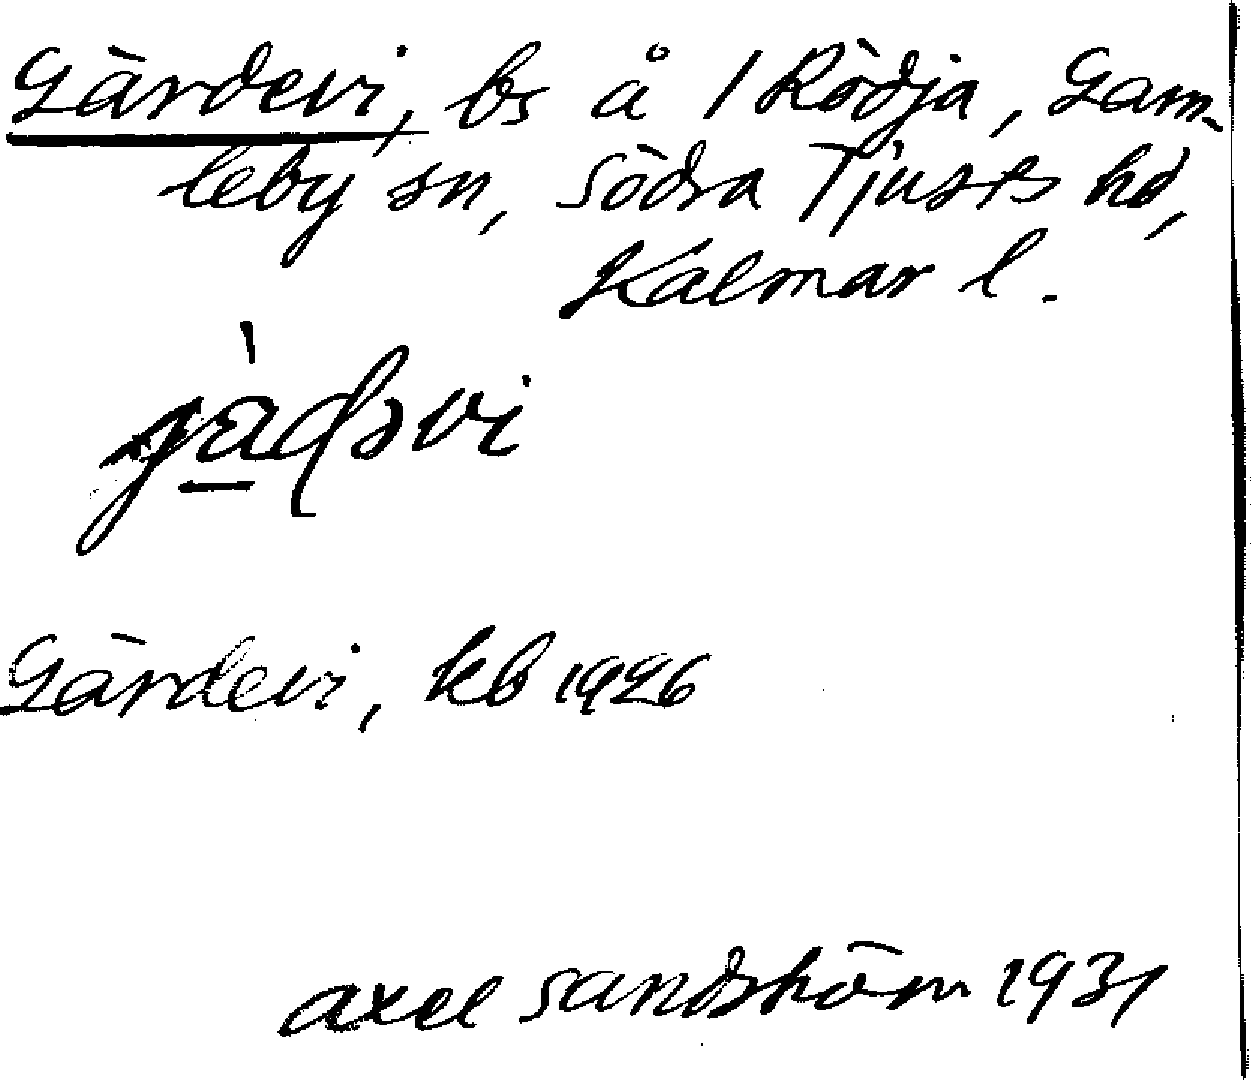 Gärdevi, bs å 1 Rödja, Gam-
leby sn, Södra Tjusts hd,
Kalmar l.
Gärdevi, kb 1926
Axel Sandström 1931